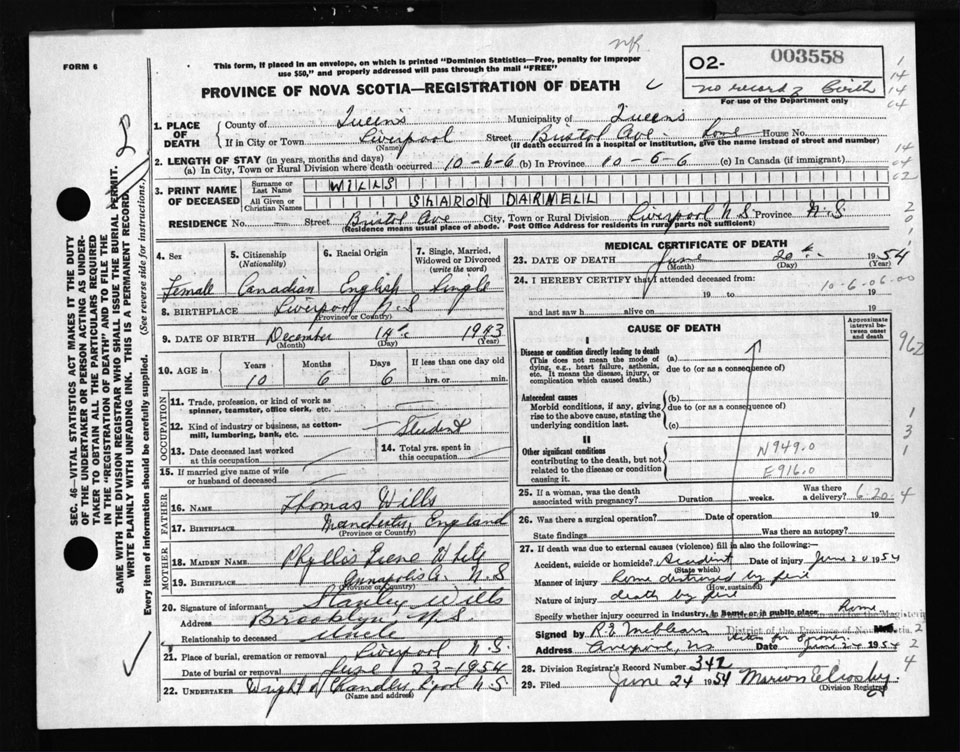 NK
FORM 6
This form, if placed in an envelope, on which is printed "Dominion Statistics—Free, penalty for improper
use $50," and properly addressed will pass through the mail "FREE"
PROVINCE OF NOVA SCOTIA—REGISTRATION OF DEATH
O2- 003558
no record of Birth
For use of the Department only
1. PLACE OF DEATH
County of Queens Municipality of Queens
If in City or Town Liverpool Street Bristol Ave. Home House No.
(Name) (If death occurred in a hospital or institution, give the name instead of street and number)
2. LENGTH OF STAY (in years, months and days)
(a) In City, Town or Rural Division where death occurred 10-6-6 (b) In Province 10-6-6 (c) In Canada (if immigrant)
3. PRINT NAME OF DECEASED
Surname or Last Name WILLS
All Given or Christian Names SHARON DARNELL
RESIDENCE No. — Street Bristol Ave City, Town or Rural Division Liverpool N.S Province N.S
(Residence means usual place of abode. Post Office Address for residents in rural parts not sufficient)
4. Sex
Female
5. Citizenship
(Nationality)
Canadian
6. Racial Origin
English
7. Single, Married, Widowed or Divorced
(write the word)
Single
8. BIRTHPLACE Liverpool N.S
(Province or Country)
9. DATE OF BIRTH December 14th 1943
(Month) (Day) (Year)
10. AGE in Years Months Days If less than one day old
10 6 6 hrs. or min.
OCCUPATION
11. Trade, profession, or kind of work as
spinner, teamster, office clerk, etc. —
12. Kind of industry or business, as cotton-
mill, lumbering, bank, etc. Student
13. Date deceased last worked
at this occupation
14. Total yrs. spent in
this occupation
15. If married give name of wife
or husband of deceased
FATHER
16. NAME Thomas Wills
17. BIRTHPLACE Manchester, England
(Province or Country)
MOTHER
18. MAIDEN NAME Phyllis Irene White
19. BIRTHPLACE Annapolis Co. N.S
(Province or Country)
20. Signature of informant Stanley Wills
Address Brooklyn N.S.
Relationship to deceased Uncle
21. Place of burial, cremation or removal Liverpool N.S.
Date of burial or removal June 23-1954
22. UNDERTAKER Wright & Chandler, Lpool N.S
(Name and address)
MEDICAL CERTIFICATE OF DEATH
23. DATE OF DEATH June 20th 1954
(Month) (Day) (Year)
24. I HEREBY CERTIFY that I attended deceased from:
10-6.06.00
19 to 19
and last saw h alive on 19
CAUSE OF DEATH
Approximate interval between onset and death
I
Disease or condition directly leading to death (a)
(This does not mean the mode of dying, e.g., heart failure, asthenia, etc. It means the disease, injury, or complication which caused death.)
due to (or as a consequence of)
Antecedent causes (b)
Morbid conditions, if any, giving rise to the above cause, stating the underlying condition last.
due to (or as a consequence of)
(c)
II
Other significant conditions
contributing to the death, but not related to the disease or condition causing it.
N949.0
E916.0
25. If a woman, was the death
associated with pregnancy? Duration weeks. Was there a delivery? 6.20.4
26. Was there a surgical operation? Date of operation 19
State findings Was there an autopsy?
27. If death was due to external causes (violence) fill in also the following:
Accident, suicide or homicide? Accident Date of injury June 20 1954
(State which)
Manner of injury Home destroyed by fire
(How sustained)
Nature of injury death by fire
Specify whether injury occurred in Industry, in Home, or in public place Home
Signed by
District of the Province of Nova Scotia
Address Liverpool, NS Date June 24 1954
28. Division Registrar's Record Number 342
29. Filed June 24 1954 Marion E Crosby
(Division Registrar)
SEC. 46—VITAL STATISTICS ACT MAKES IT THE DUTY
OF THE UNDERTAKER OR PERSON ACTING AS UNDER-
TAKER TO OBTAIN ALL THE PARTICULARS REQUIRED
IN THE "REGISTRATION OF DEATH" AND TO FILE THE
SAME WITH THE DIVISION REGISTRAR WHO SHALL ISSUE THE BURIAL PERMIT.
WRITE PLAINLY WITH UNFADING INK. THIS IS A PERMANENT RECORD.
Every item of information should be carefully supplied. (See reverse side for instructions.)
1
14
14
04
14
04
02
962
1
3
1
2
2
4